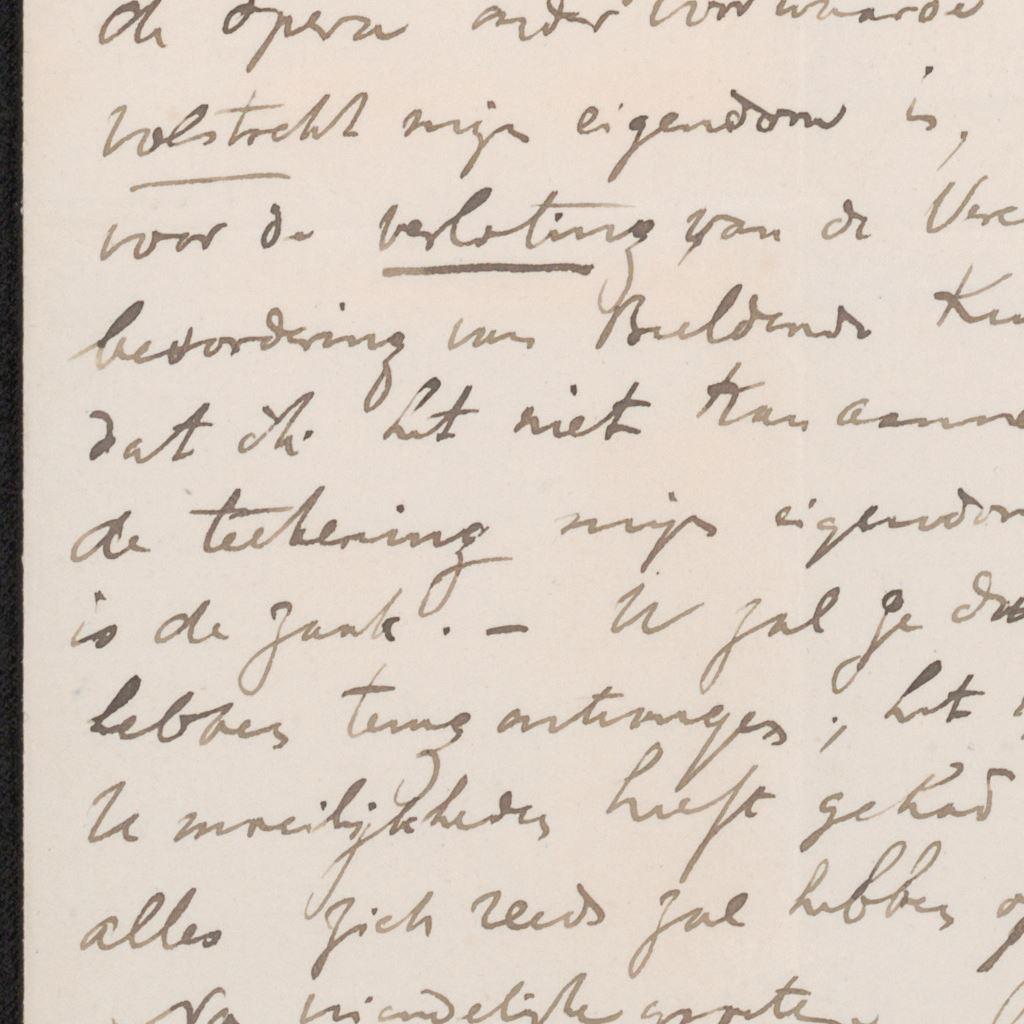 de opera onder voorwaarde
volstrekt mijn eigendom is,
voor de verloting van de Vere
bevordering van Beeldende Kun
dat ik het niet kan aanne
de teekening mijn eigendom
is de zaak. — U zal ge
hebben terug ontvangen; het
U moeilijkheden heeft gehad
alles zich reeds zal hebben op
Na vriendelijke groete